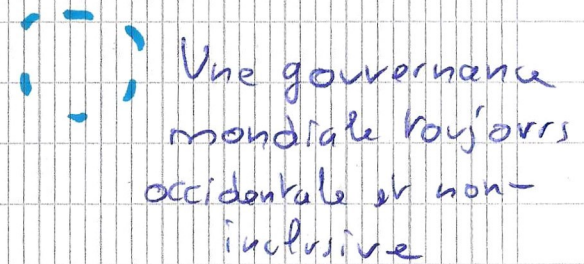 Une gouvernance
mondiale toujours
occidentale et non-
inclusive